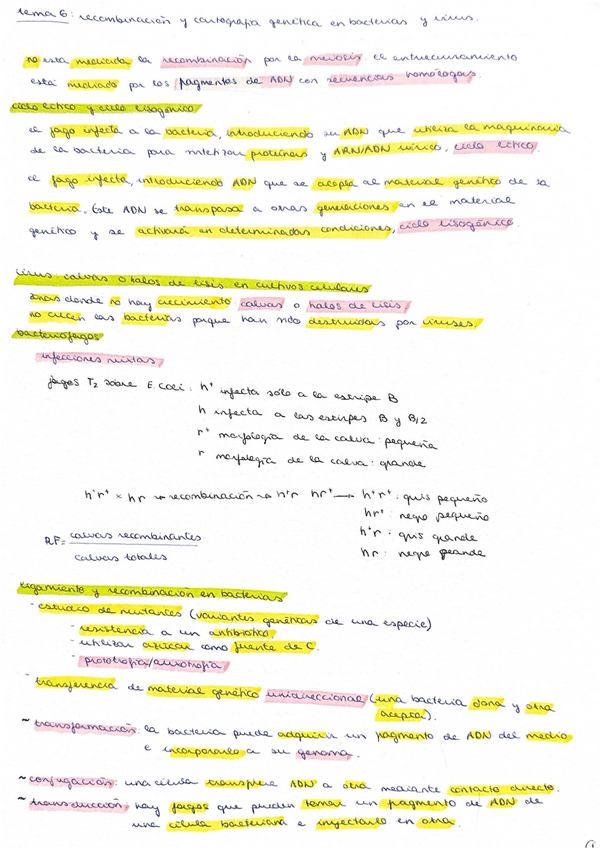 tema 6: recombinación y cartografía genética en bacterias y virus.
no esta mediada la recombinación por la meiosis. el entrecruzamiento
está mediado por los fragmentos de ADN con secuencias homólogas.
ciclo lítico y ciclo lisogénico
el fago infecta a la bacteria, introduciendo su ADN que utiliza la maquinaria
de la bacteria para sintetizar proteínas y ARN/ADN vírico, ciclo lítico.
el fago infecta, introduciendo ADN que se acopla al material genético de la
bacteria. Este ADN se transpasa a otras generaciones en el material
genético y se activará en determinadas condiciones, ciclo lisogénico.
virus: calvas o halos de lisis en cultivos celulares
zonas donde no hay crecimiento: calvas o halos de lisis,
no crecen las bacterias porque han sido destruidas por viruses.
bacteriófagos
infecciones mixtas,
fagos T2 sobre E.coli: h⁺ infecta sólo a la estirpe B
h infecta a las estirpes B y B/2
r⁺ morfología de la calva: pequeña
r morfología de la calva: grande
h⁺r⁺ × hr → recombinación → h⁺r hr⁺ → h⁺r⁺: gris pequeño
hr⁺: negro pequeño
h⁺r: gris grande
hr: negro grande
RF= calvas recombinantes
calvas totales
ligamiento y recombinación en bacterias
- estudio de mutantes (variantes genéticas de una especie)
- resistencia a un antibiótico.
- utilizar azúcar como fuente de C.
- prototrofía/auxotrofía
- transferencia de material genético unidireccional (una bacteria dona y otra
acepta).
~ transformación: la bacteria puede adquirir un fragmento de ADN del medio
e incorporarlo a su genoma.
~ conjugación: una célula transfiere ADN a otra mediante contacto directo.
~ transducción: hay fagos que pueden tomar un fragmento de ADN de
una célula bacteriana e inyectarlo en otra.